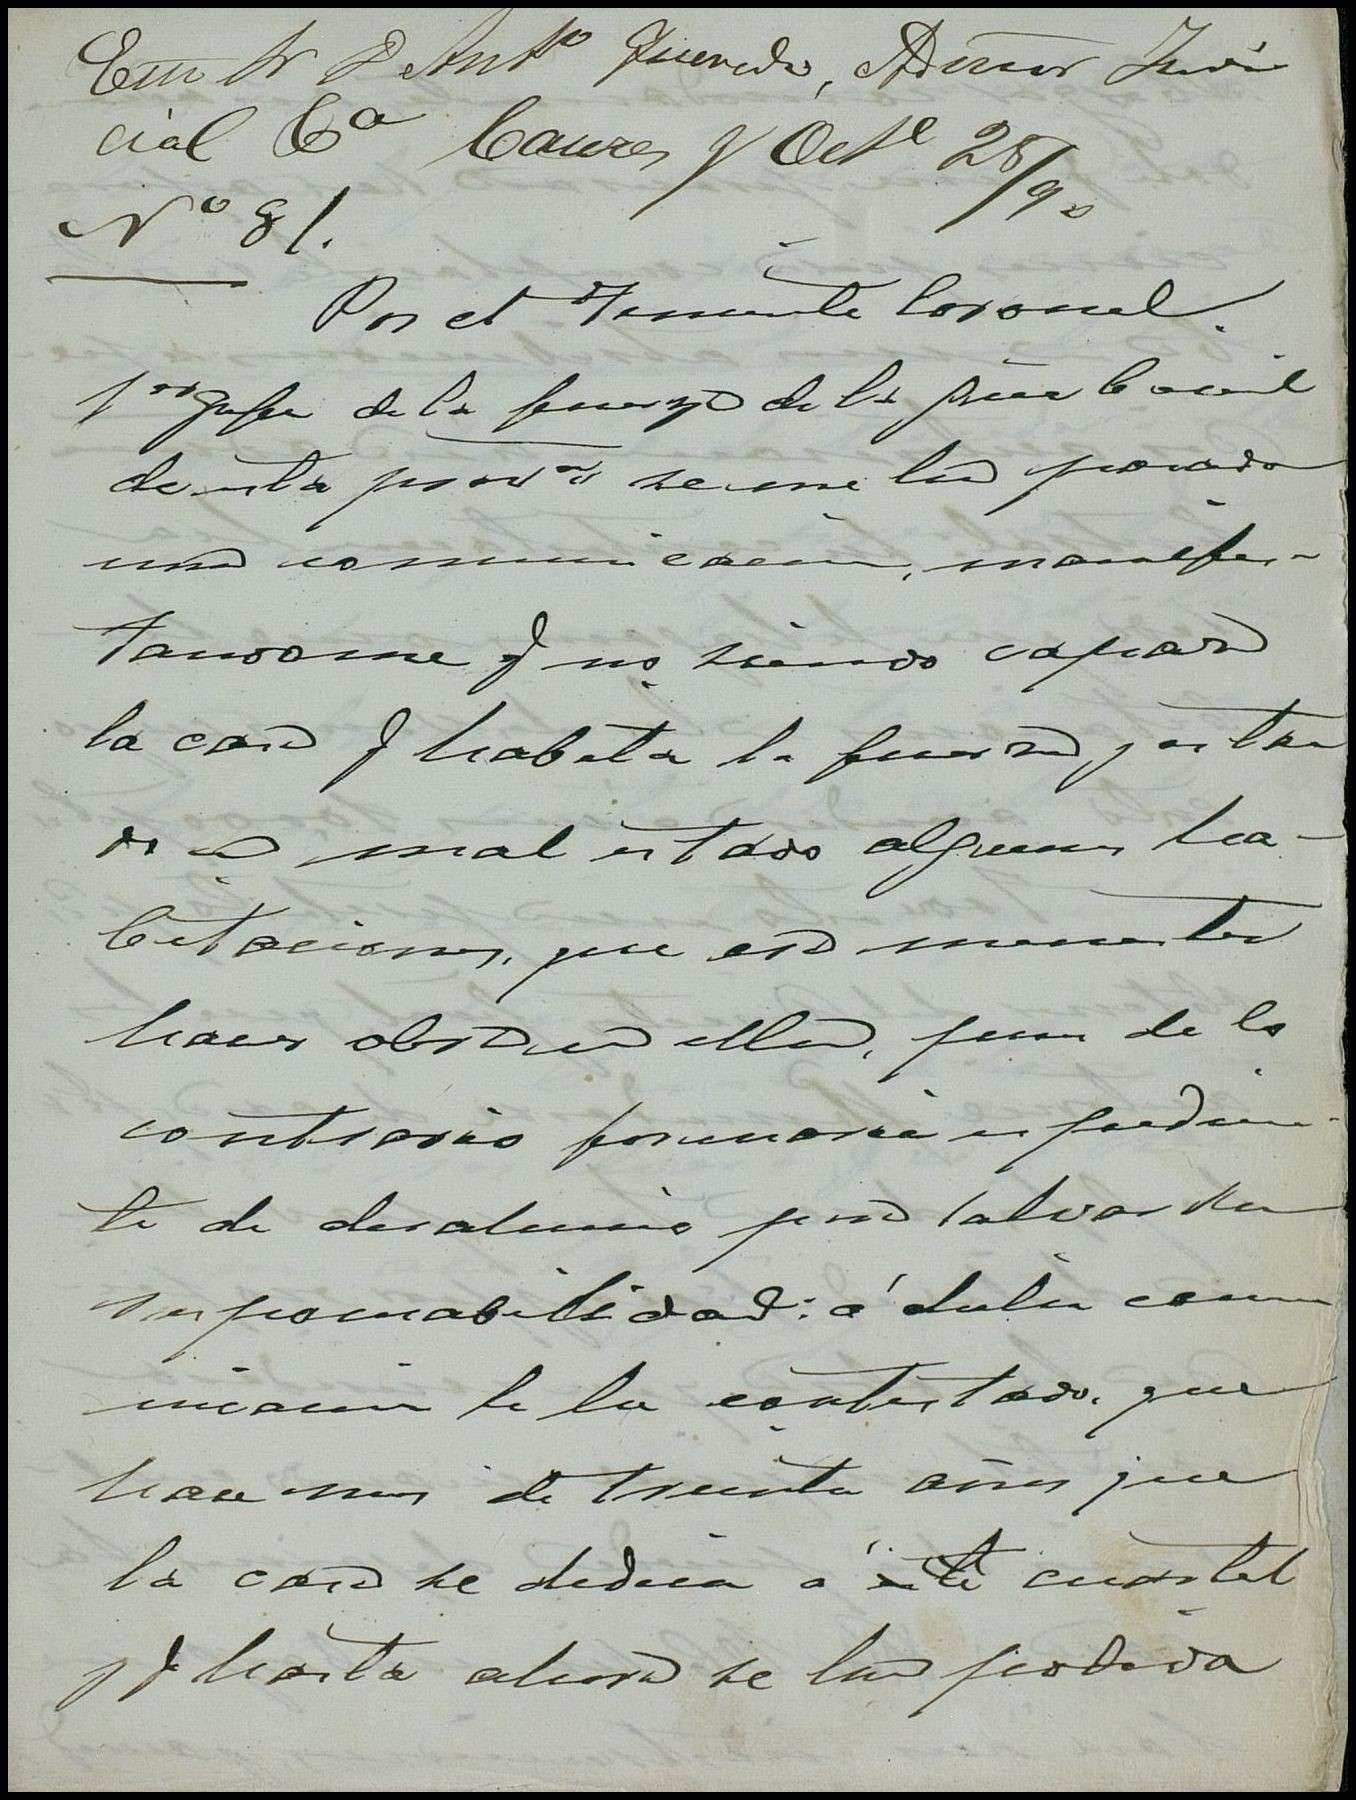 Exmo Sr D Antº Quevedo, Admor Judi
cial Cª Caceres y Octe 28/90
Nº 81.
Por el Teniente Coronel
1er Gefe de la fuerza de la Guardia Civil
de esta provª se me ha pasado
una comunicacion, manifes-
tandome q no siendo capaz
la casa q habita la fuerza, y estan
do en mal estado algunas ha-
bitaciones, que era menester
hacer obra en ella, pues de lo
contrario formaria espedien-
te de desaucio para salvar su
responsabilidad: á dicha comu
nicacion le he contestado, que
hace mas de treinta años que
la casa se dedica á este cuartel
y q hasta ahora se ha podido